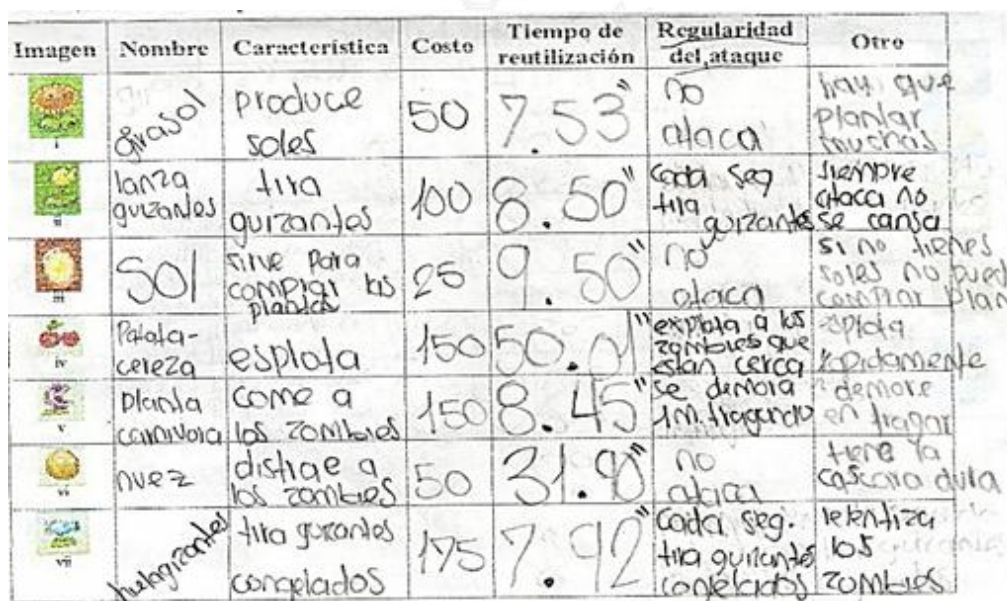 Imagen Nombre Característica Costo Tiempo de reutilización Regularidad del ataque Otro
i girasol produce soles 50 7.53" no ataca hay que plantar muchas
ii lanza guizantes tira guizantes 100 8.50" cada seg tira guizantes siempre ataca no se cansa
iii Sol sirve para comprar las plantas 25 9.50" no ataca si no tienes soles no pued comprar plan
iv Patata-cereza esplota 150 50.01" explota a los zombies que estan cerca esplota rapidamente
v planta carnivora come a los zombies 150 8.45" se demora 1m. tragando demora en tragar
vi nuez distrae a los zombies 50 31.90" no ataca tiene la cascara dura
vii hielaguizantes tira guizantes congelados 175 7.92" cada seg. tira guizantes congelados relentiza los zombies